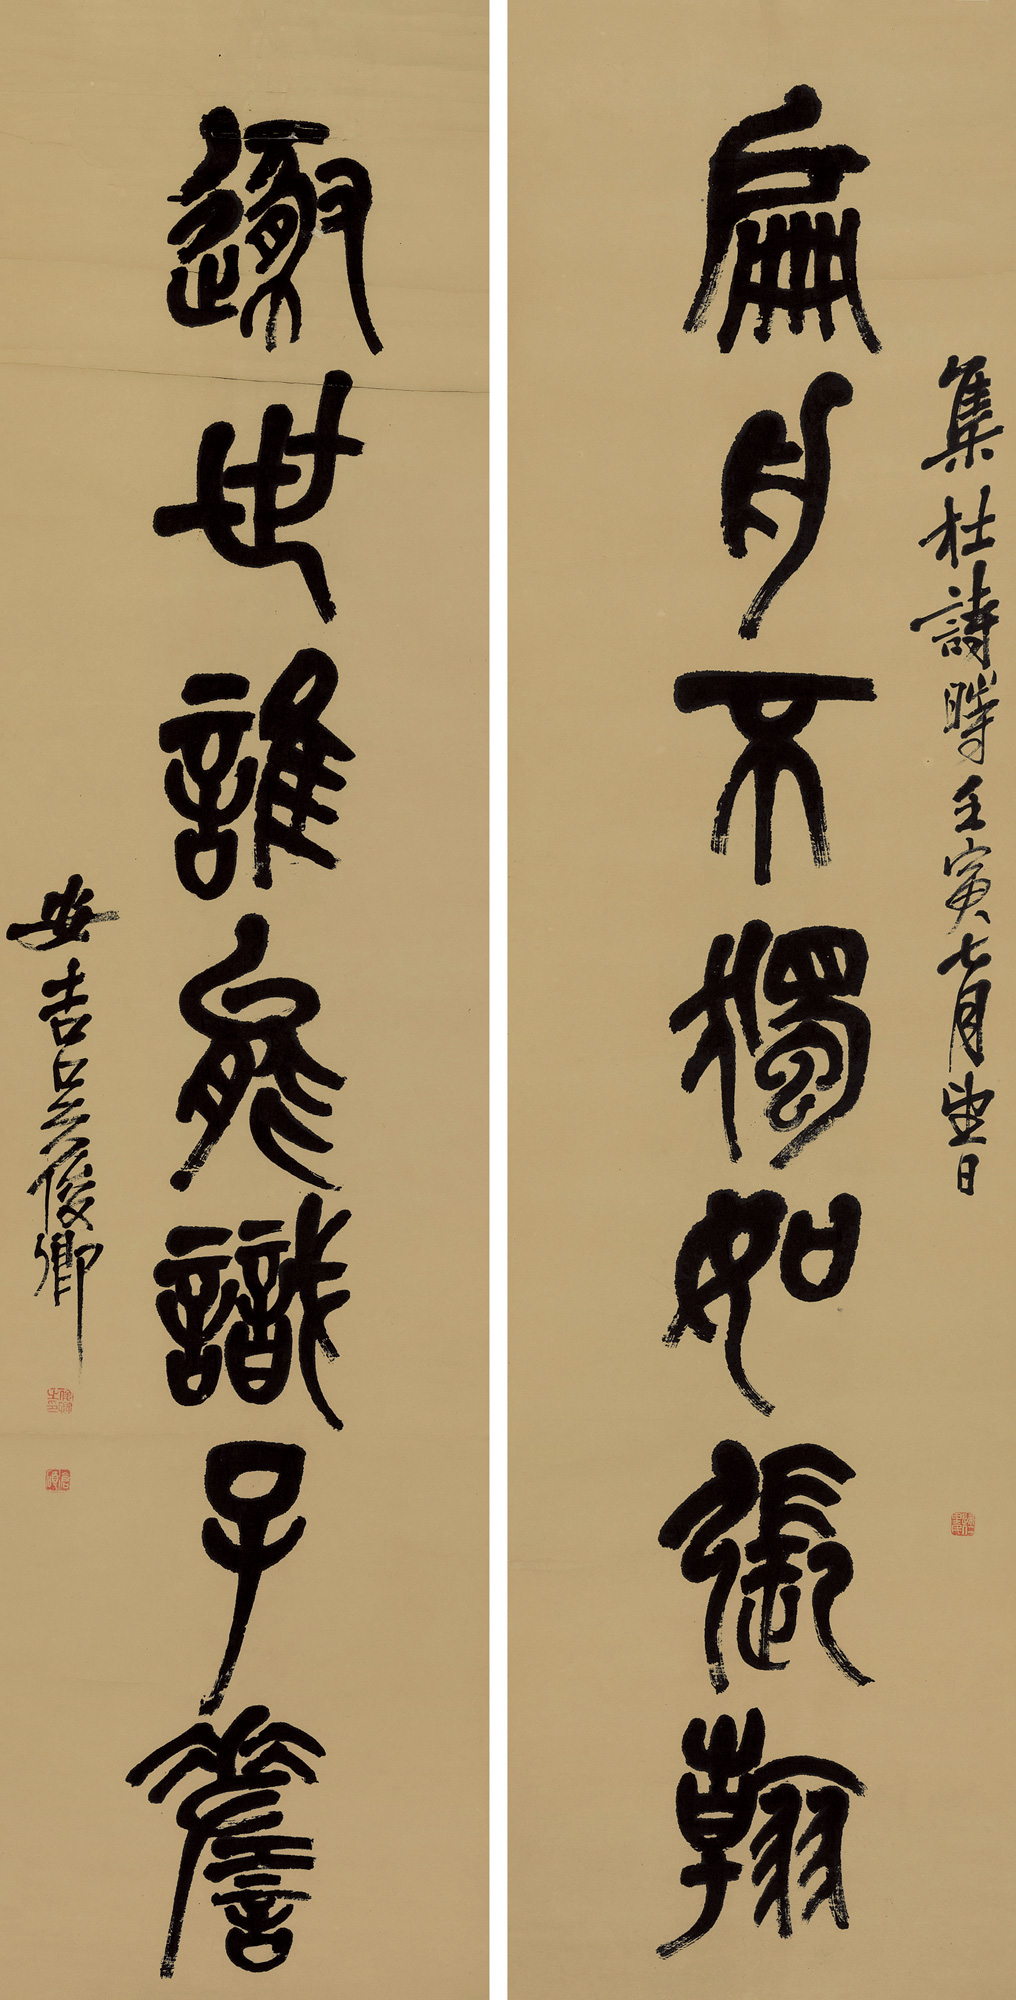 扁舟不獨如張翰
集杜詩時壬寅七月望日
遯世誰能識子
安吉吳俊卿